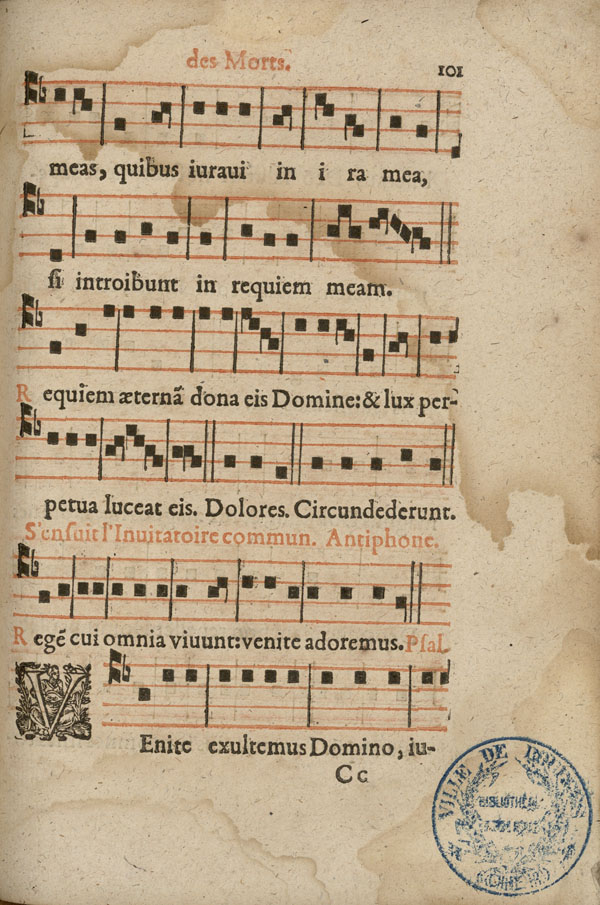 des Morts.
101
meas, quibus iuraui in i ra mea,
si introibunt in requiem meam.
Requiem æternã dona eis Domine: & lux per-
petua luceat eis. Dolores. Circundederunt.
S'ensuit l'Inuitatoire commun. Antiphone.
Regẽ cui omnia viuunt: venite adoremus. Psal.
VEnite exultemus Domino, iu-
Cc
VILLE DE
BIBLIOTHÈ